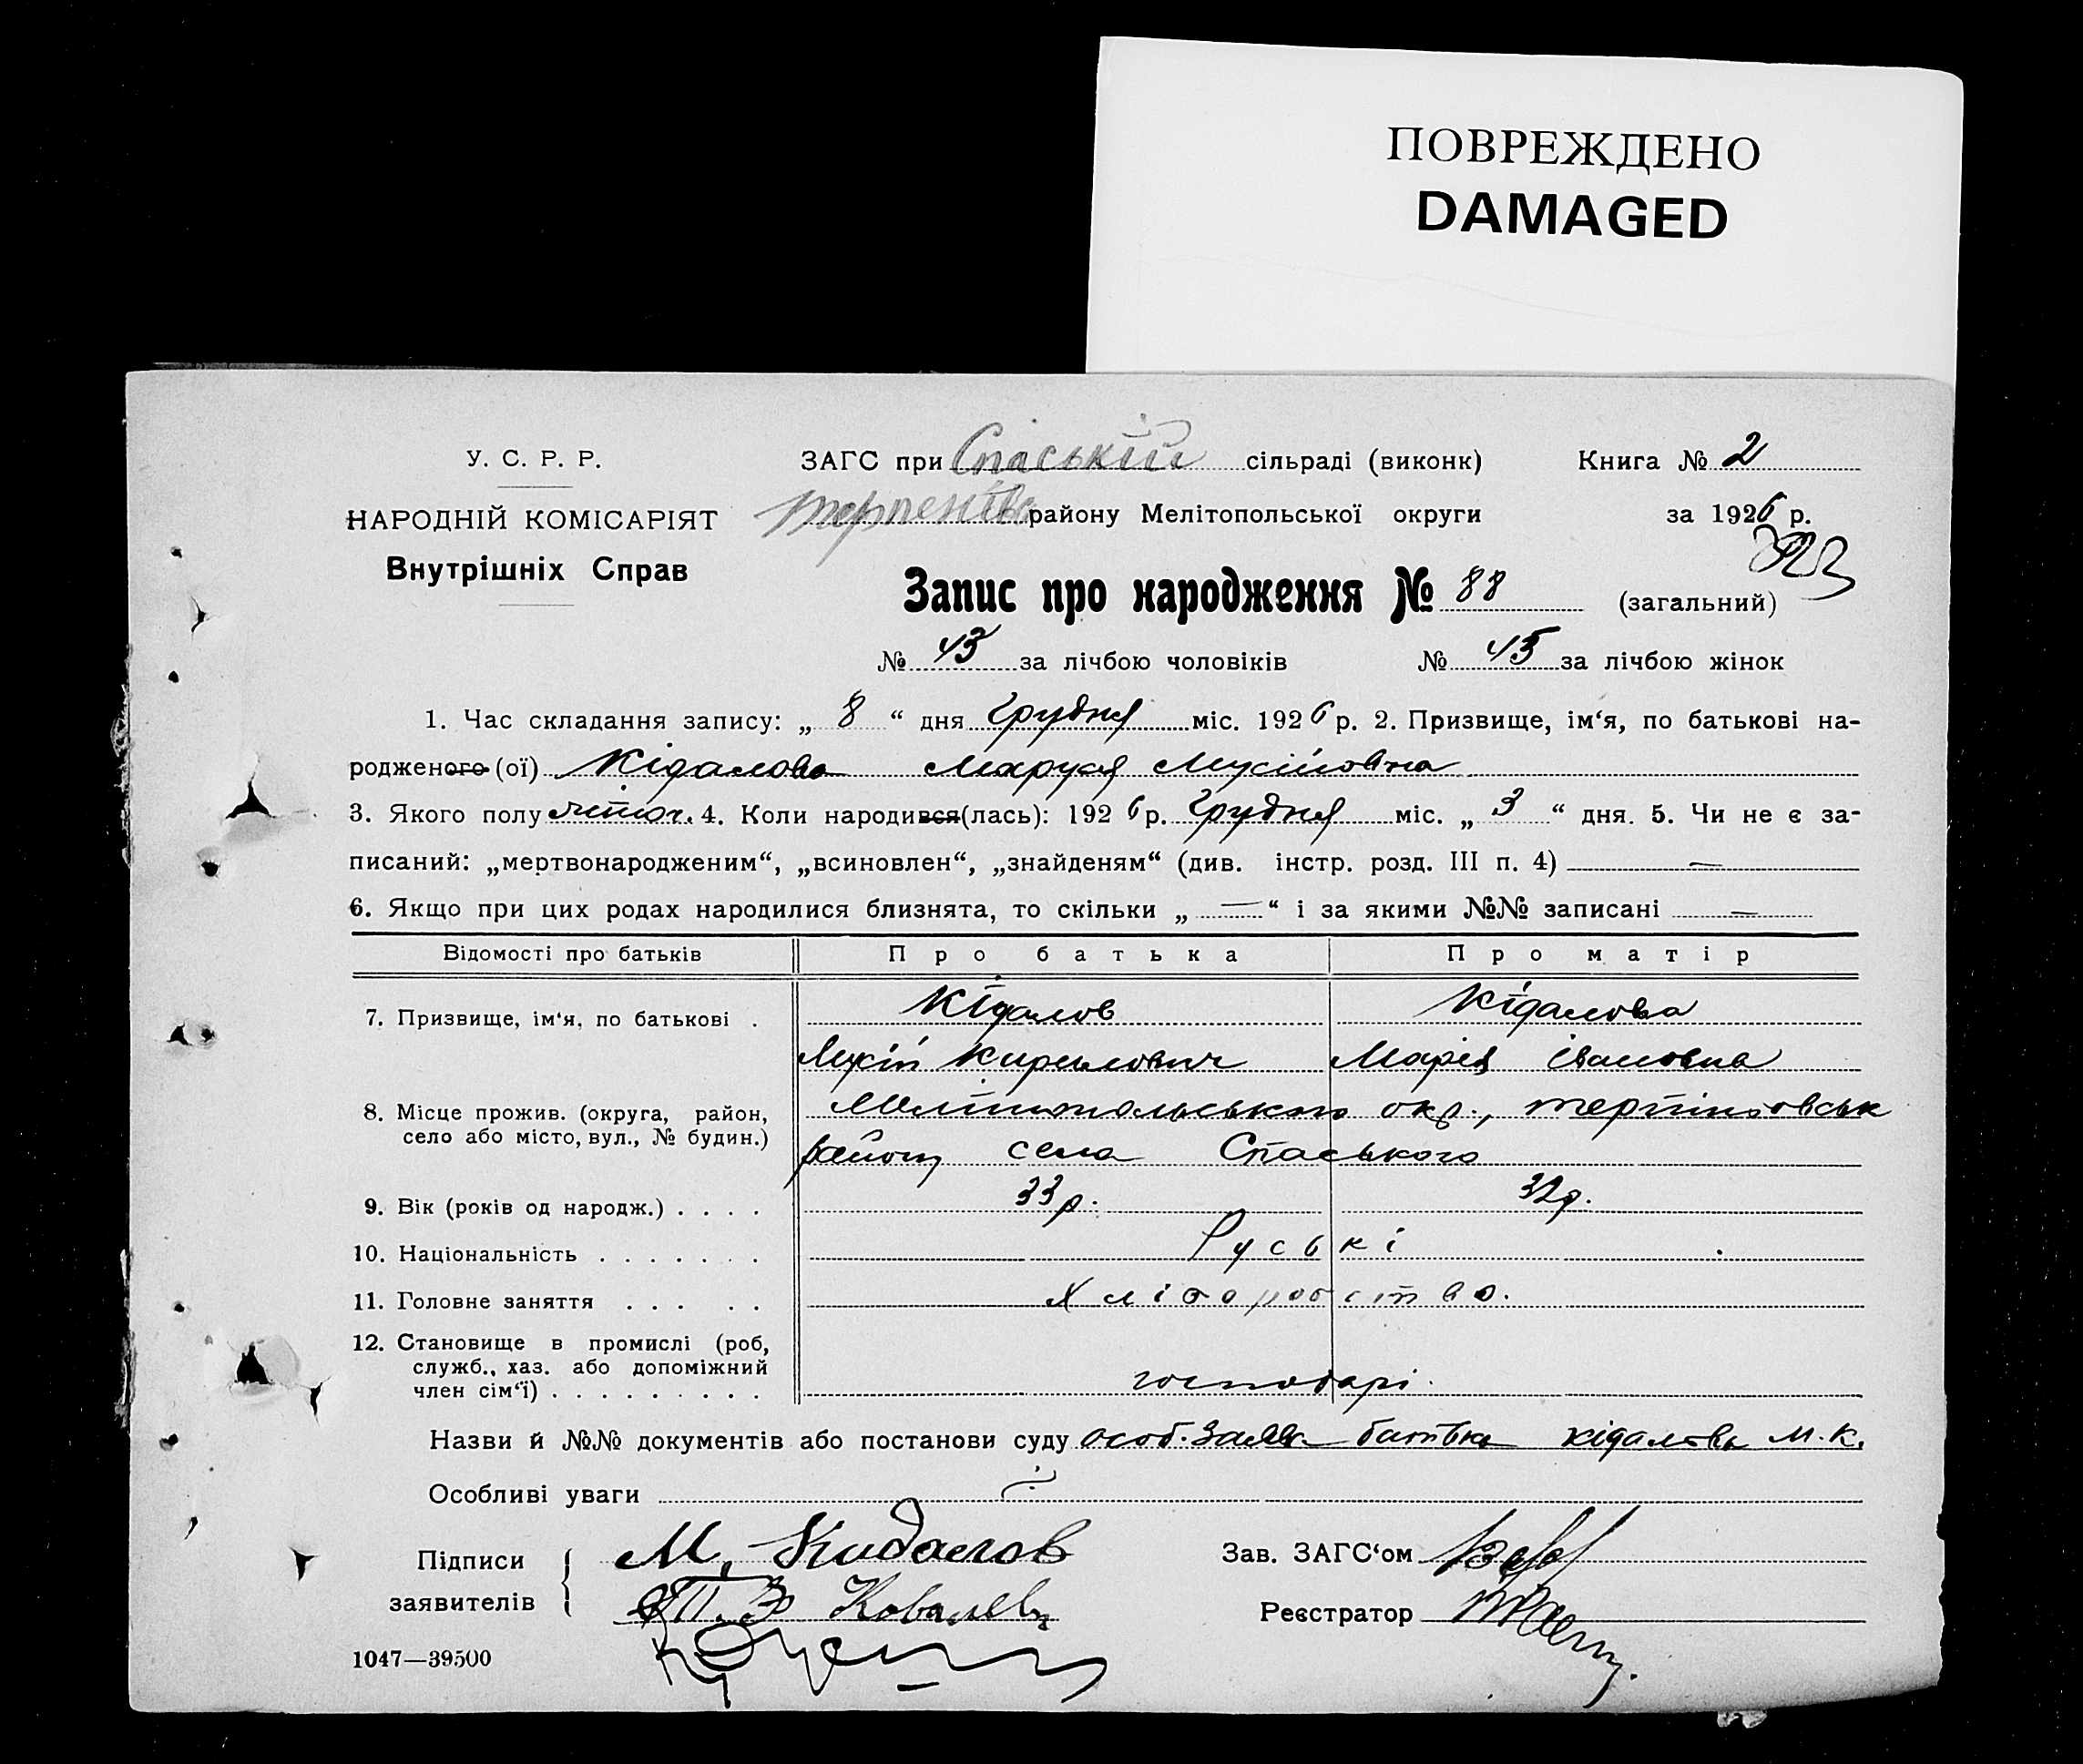 ПОВРЕЖДЕНО
DAMAGED
У. С. Р. Р.
НАРОДНІЙ КОМІСАРІЯТ
Внутрішніх Справ
ЗАГС при Спаській сільраді (виконк) Книга № 2
району Мелітопольської округи за 1926 р.
Запис про народження № 88 (загальний)
№ 43 за лічбою чоловіків № 45 за лічбою жінок
1. Час складання запису: „ 8 “ дня Грудня міс. 1926 р. 2. Призвище, ім‘я, по батькові на-
родженого (ої) Кідалова Маруся Мусійовна
3. Якого полу жіноч. 4. Коли народився(лась): 1926 р. Грудня міс. „ 3 “ дня. 5. Чи не є за-
писаний: „мертвонародженим“, „всиновлен“, „знайденям“ (див. інстр. розд. III п. 4) —
6. Якщо при цих родах народилися близнята, то скільки „ — “ і за якими №№ записані —
Відомості про батьків Про батька Про матір
7. Призвище, ім‘я, по батькові . Кідалов Кідалова
Мусій Кирилович Марія Івановна
8. Місце прожив. (округа, район, село або місто, вул., № будин.) Мелітопольського окр., терпіновськ
району села Спаського
9. Вік (років од народж.) . . . . 33 р. 32 р.
10. Національність . . . . . . . Руські
11. Головне заняття . . . . . Хліборобство.
12. Становище в промислі (роб,
служб., хаз. або допоміжний
член сім‘ї) . . . . . . . . . господарі.
Назви й №№ документів або постанови суду особ. заява батька Кідалова М. К.
Особливі уваги
Підписи М. Кидалов Зав. ЗАГС‘ом
заявителів Реєстратор
1047—39500